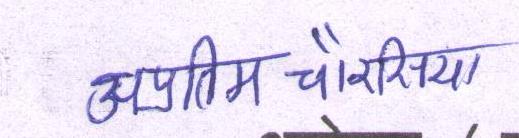 अप्रतिम चौरसिया